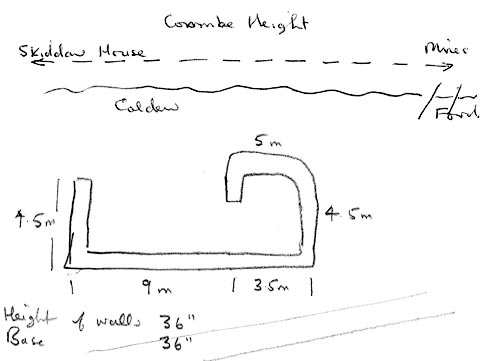 Coombe Height
Skiddaw House
Mines
Caldew
Ford
5m
4.5m
4.5m
9m
3.5m
Height of walls 36"
Base 36"